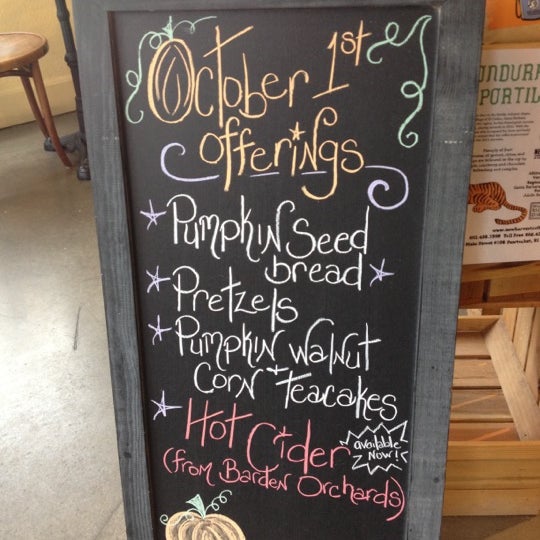 October 1st
offerings
Pumpkin Seed
bread
Pretzels
Pumpkin walnut
+
Corn teacakes
Hot Cider
available
Now!
(from Barden Orchards)
ONDURA
PORTIL